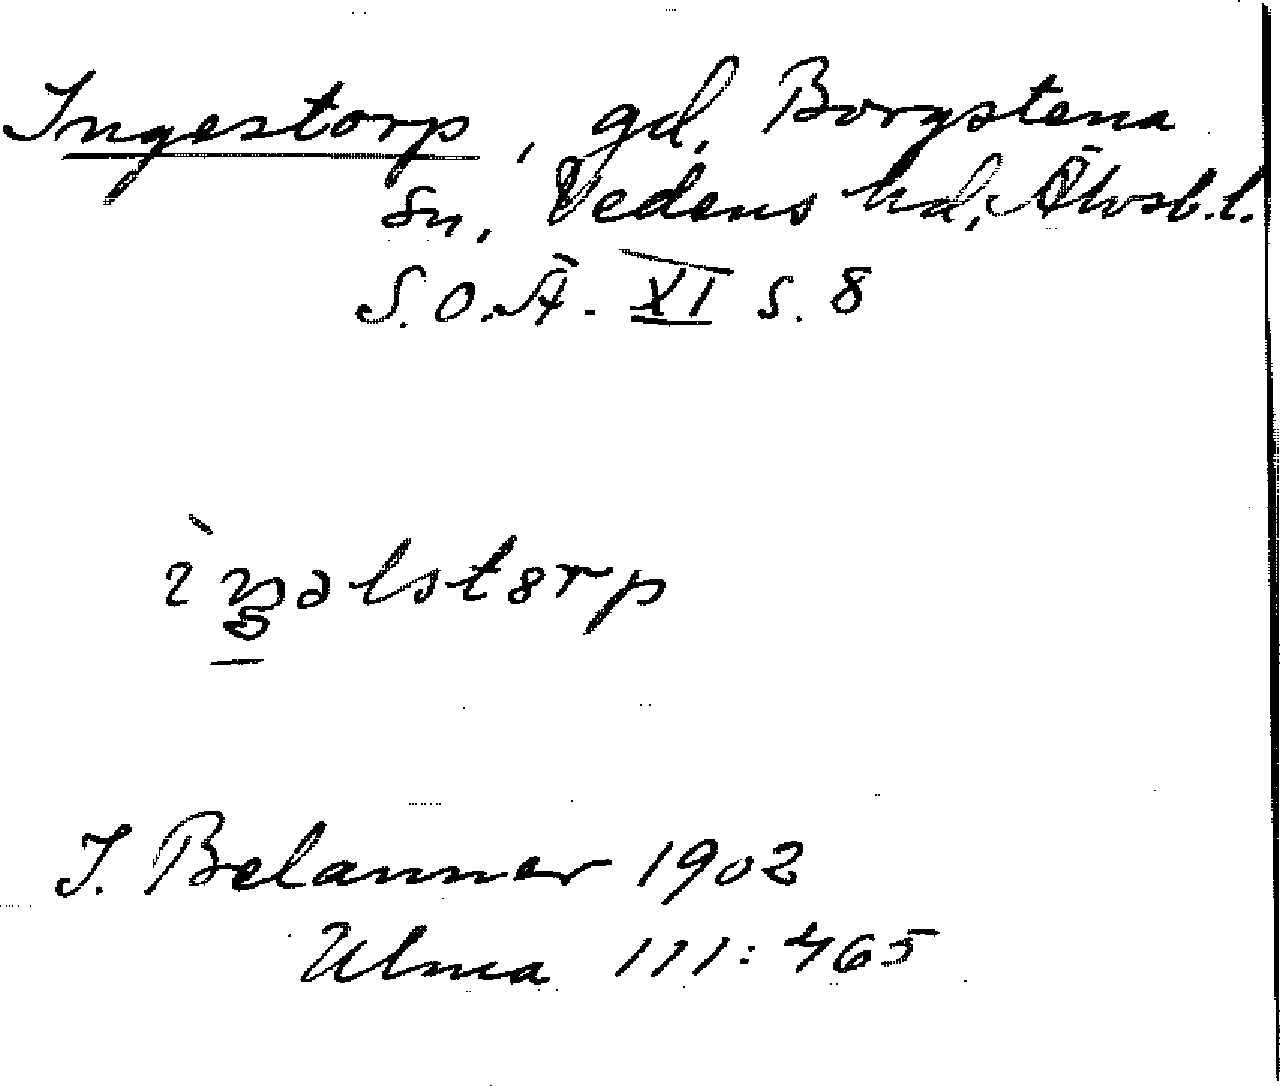 Ingestorp, gd, Borgstena
sn, Vedens hd, Älvsb.l.
S.O.Ä. XI s. 8
J. Belanner 1902
Ulma 111:465